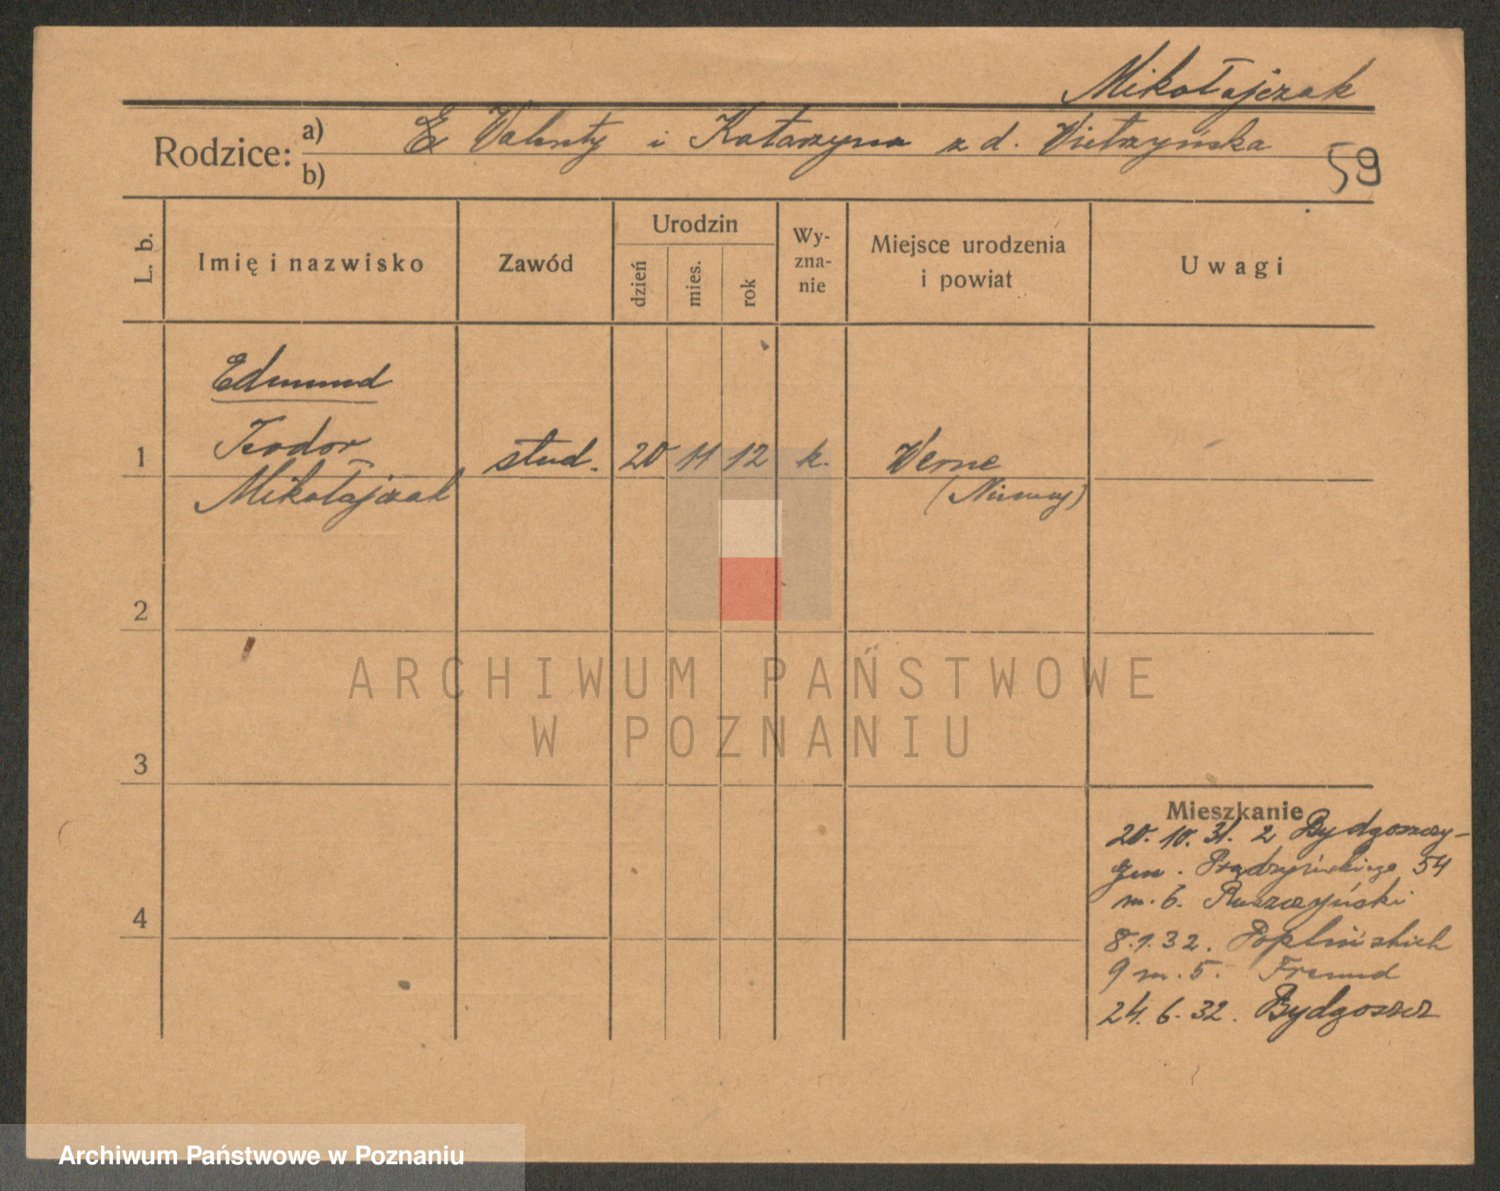 Mikołajczak
Rodzice: a) Walenty i Katarzyna z d. Wietrzyńska
b)
59
L. b.
Imię i nazwisko
Zawód
Urodzin
dzień
mies.
rok
Wy-
zna-
nie
Miejsce urodzenia
i powiat
Uwagi
Edmund
Teodor
1 Mikołajczak stud. 20 11 12 k. Werne
(Niemcy)
2
3
4
Mieszkanie
20. 10. 31. z Bydgoszczy
gen. Prądzyńskiego 54
m. 6. Ruszczyński
8.1.32. Poplińskich
9 m. 5. Freund
24. 6. 32. Bydgoszcz
ARCHIWUM PAŃSTWOWE
W POZNANIU
Archiwum Państwowe w Poznaniu